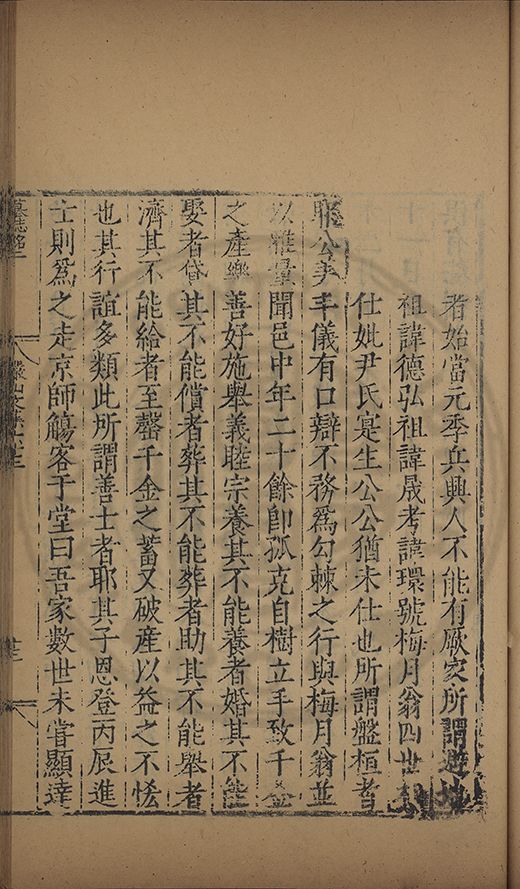 者始當元季兵興人不能有厥家所謂遊
祖諱德弘祖諱晟考諱環號梅月翁四世
仕妣尹氏寔生公公猶未仕也所謂盤桓者
耶公丰儀有口辯不務爲勾棘之行與梅月翁並
以雅量聞邑中年二十餘卽孤克自樹立手致千金
之產樂善好施舉義睦宗養其不能養者婚其不能
娶者貸其不能償者葬其不能葬者助其不能舉者
濟其不能給者至罄千金之蓄又破產以益之不恡
也其行誼多類此所謂善士者耶其子恩登丙辰進
士則爲之走京師觴客于堂曰吾家數世未嘗顯達
墓誌銘